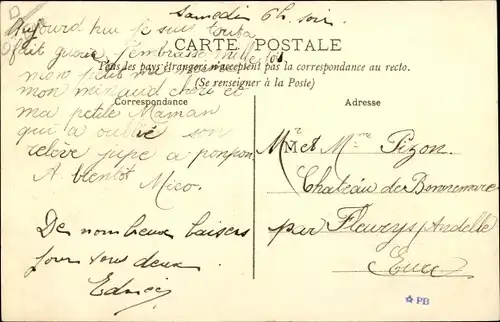 Samedi 6h. soir
Aujourd'hui je suis tout à
fait guérie J'embrasse mille fois
CARTE POSTALE
Tous les pays étrangers n'acceptent pas la correspondance au recto.
(Se renseigner à la Poste)
mon petit
mon minaud chéri et
ma petite Maman
qui a oublié son
relève jupe a ponpon
A bientôt
Mico.
De nombreux baisers
pour vous deux
Correspondance
Adresse
M.r et M.me Pizon.
Château de Bonnemare
par Fleury s/Andelle
Eure
PB